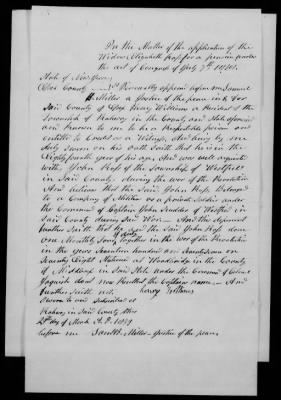 In the Matter of the application of the
Widow Elizabeth Ross for a pension under
the act of Congress of July 7th 1838.
State of New Jersey
Essex County Personally appeared before me Samuel
H. Miller a Justice of the peace in & for
Said County of Essex Henry Williams a Resident of the
Township of Rahway in the County and State aforesaid
and known to me to be a Respectable person and
entitle to credit as a Witness, And being by me
duly sworn on his oath Saith that he is in the
Eighty fourth year of his age, And was well acquainted
with John Ross of the Township of Westfield
in Said County during the war of the Revolution
And believes that the Said John Ross belonged
to a Company of Militia as a private Soldier under
the Command of Captain John Scudder of Westfield in
Said County during Said War. And this deponent
further Saith that he and the Said John Ross done
one Months duty together in the War of the Revolution
in the years Seventeen hundred and Seventy Seven or
Seventy Eight Stationed at Woodbridge in the County
of Middlesex in Said State under the Command of Colonel
Jaquish does not Recollect the Captains name And
further Saith not. Henry Williams
Sworn to and Subscribed at
Rahway in Said County this
2d day of March A.D. 1839
before me Saml H. Miller Justice of the peace